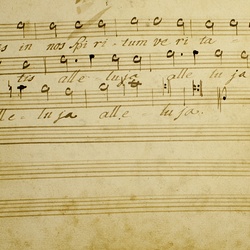 is in nos spi ri - tum ve ri ta
tis alle - luja alle lu ja
lle - lu ja alle - lu ja.